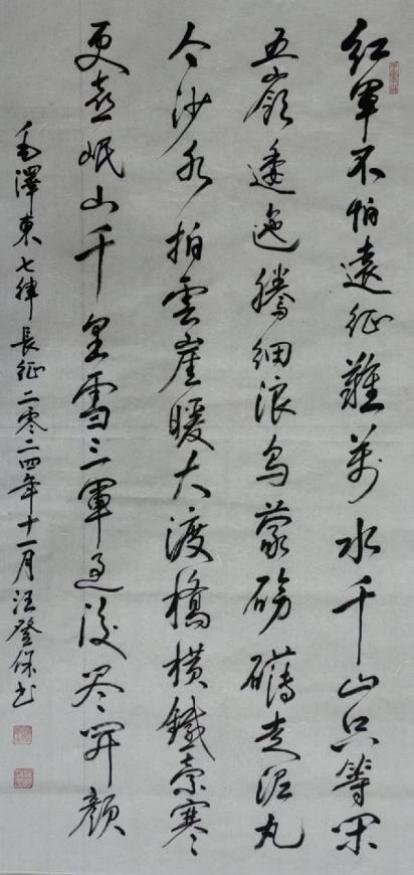 紅軍不怕遠征難萬水千山只等閑
五嶺逶迤騰細浪烏蒙磅礴走泥丸
金沙水拍雲崖暖大渡橋橫鐵索寒
更喜岷山千里雪三軍過後盡開顏
毛澤東七律長征二零二四年十一月汪登保书